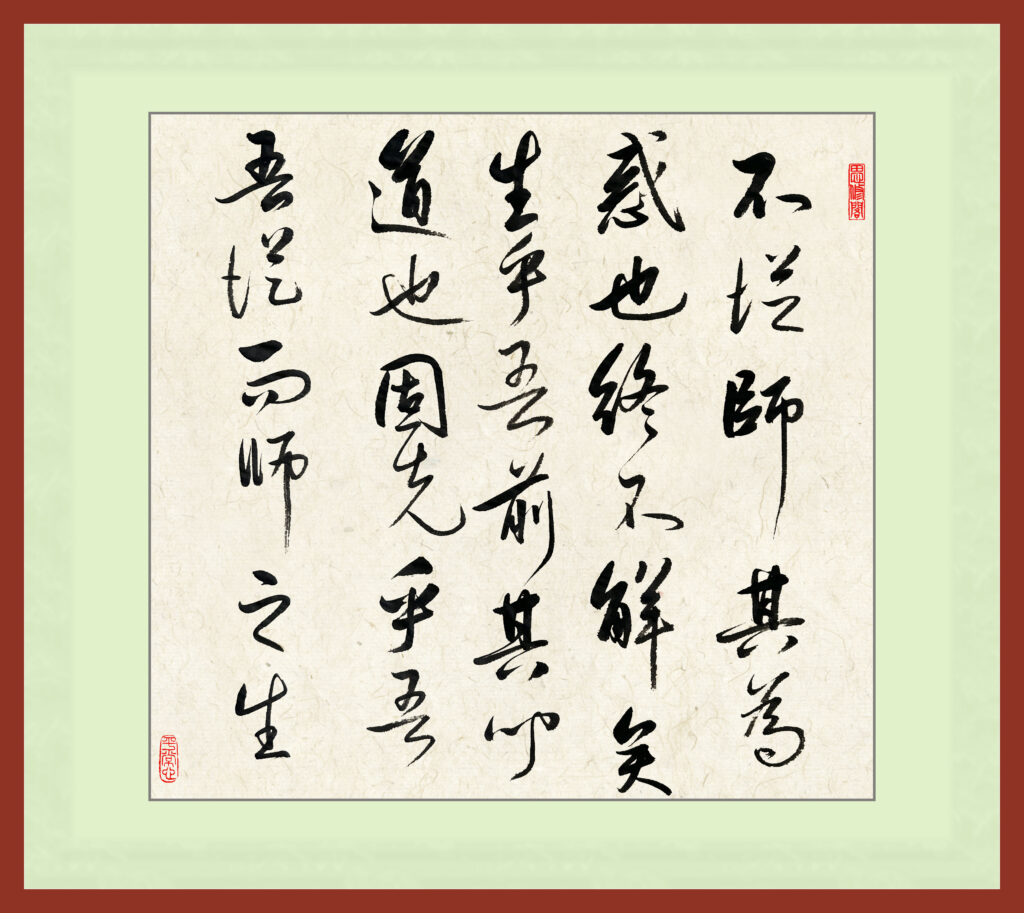 思修閣
不從師其為
惑也終不解矣
生乎吾前其聞
道也固先乎吾
吾從而師之生
平常心